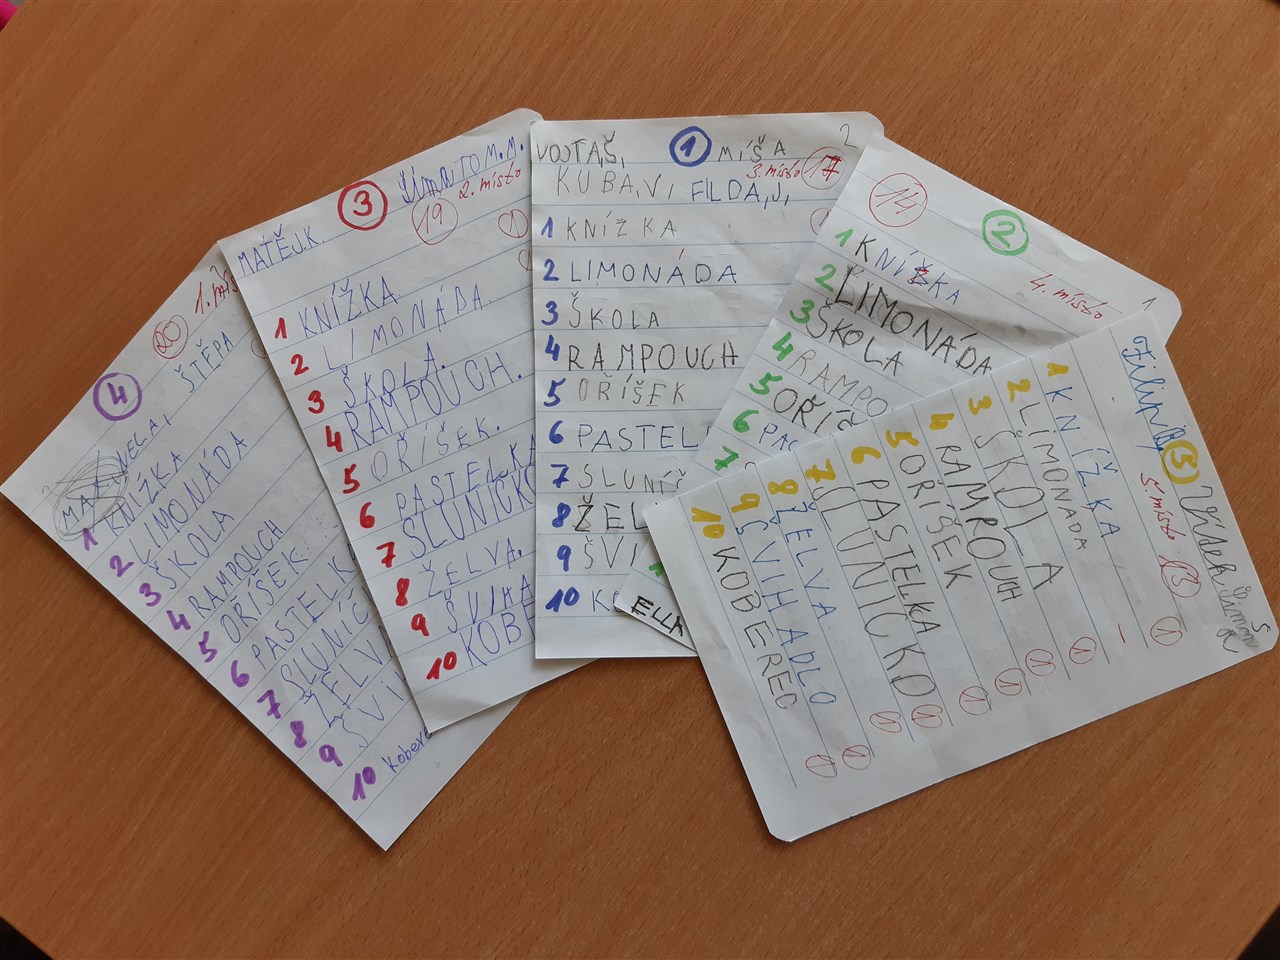 4
20
1.
ŠTĚPA
NELA,
1 KNÍŽKA
2 LIMONÁDA
3 ŠKOLA
4 RAMPOUCH
5 OŘÍŠEK
6 PASTELK
7 SLUNÍČ
8 ŽELV
9 ŠVI
10 Kober
3
Šíma TOM.M.
19 2. místo
MATĚJ.K.
1
1 KNÍŽKA.
2 LIMONÁDA.
3 ŠKOLA.
4 RAMPOUCH.
5 OŘÍŠEK.
6 PASTELKA
7 SLUNÍČKO
8 ŽELVA.
9 ŠVIHA
10 KOBE
2
VOJTA,Š, 1 MÍŠA
3. místo 17
KUBA,V, FILDA,J,
1 KNÍŽKA
2 LIMONÁDA
3 ŠKOLA
4 RAMPOUCH
5 OŘÍŠEK
6 PASTEL
7 SLUNÍČ
8 ŽEL
9 ŠVI
10 K
ELLA
14
2
4. místo
1
1 KNÍŽKA
2 LIMONÁDA
3 ŠKOLA
4 RAMPO
5 OŘÍŠ
6 PAS
7
Filip
5
Vítek
5. místo 13
1 KNÍŽKA 1
2 LIMONADA
3 ŠKOLA 1
4 RAMPOUCH 1
5 OŘÍŠEK 1
6 PASTELKA 1
7 SLUNÍČKO 1
8 ŽELVA 1
9 ŠVIHADLO 1
10 KOBEREC 1